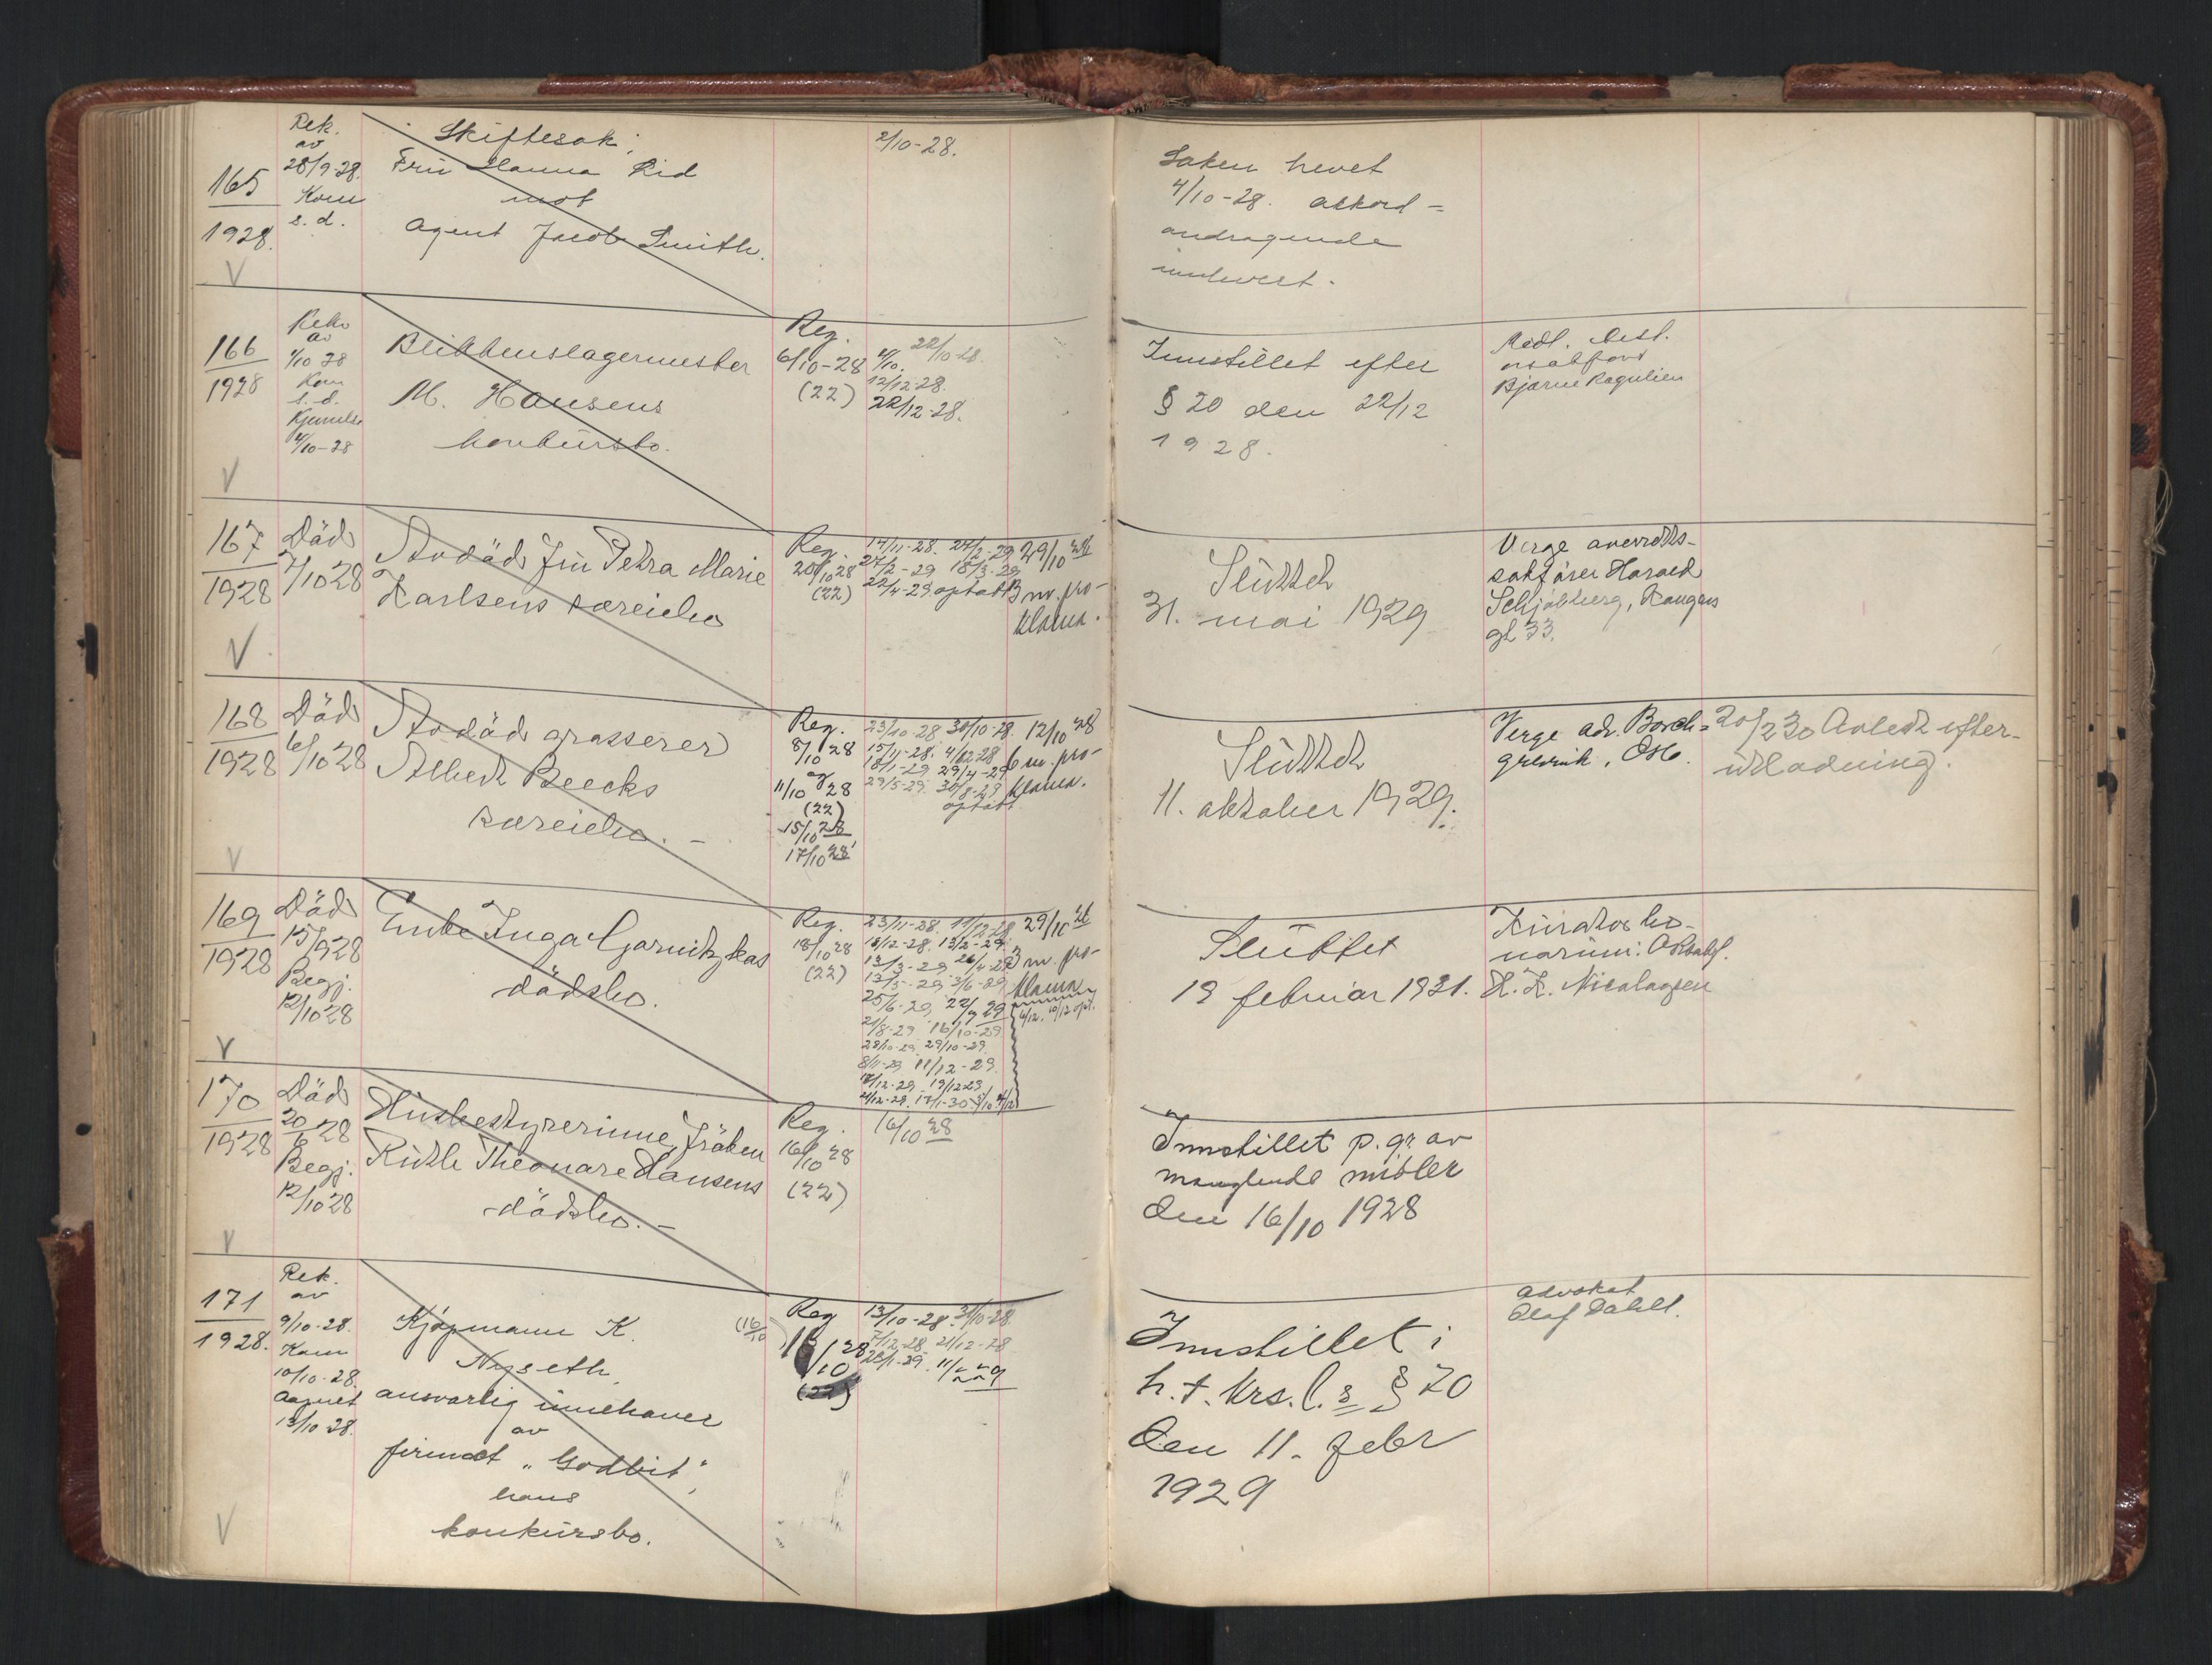 165
1928.
V
Rek.
av
28/9-28.
Kom
s. d.
Skiftesak.
Fru Hanna Rid
mot
Agent Jacob Smith.
2/10-28.
Saken hevet
4/10-28. akkord-
andragende
innlevert.
166
1928
V
Rek.
av
1/10 28
Kom
s. d.
Kjennelse
4/10-28
Blikkenslagermester
M. Hansens
konkursbo.
Reg.
6/10-28
(22)
22/10-28.
4/10.
12/12-28.
22/12-28.
Innstillet efter
§ 20 den 22/12
1928.
Bjarne Rogulien
167
1928
V
Död
7/10 28
Avdöd Fru Petra Marie
Karlsens særeiebo
Reg.
20/10 28
(22)
14/11-28. 27/2-29
27/2-29 18/3-29
22/4-29 optatt
29/10 28
3 m. pro-
klama.
Sluttet
31. mai 1929
Verge overretts-
sakförer Harald
gt 33.
168
1928
V
Död
6/10 28
Avdöd grosserer
Albert Beecks
særeiebo. -
Reg.
8/10 28
og
11/10 28
(22)
15/10 28
17/10 28
23/10-28 30/10-28.
15/11-28. 4/12-28
18/1-29. 29/4-29.
29/5-29. 30/8-29
optatt
12/10 28
6 m. pro-
klama.
Sluttet
11. oktober 1929.
Verge adv. Borch-
grevink, Oslo.
20/2 30 Avledt efter-
utlodning.
169
1928
V
Död
15/9 28
Begj.
12/10 28
Enke Inga Czarnitzkas
dödsbo.
Reg.
18/10 28
(22)
23/11-28. 11/12-28
18/12-28. 13/2-29.
13/3-29 26/4-29
13/5-29 3/6-29
25/6-29 22/7 29
21/8-29 16/10-29
28/10-29 29/10-29
8/11-29 11/12-29.
17/12-29 19/12 29
29/10 28
3 m. pro-
klama
Sluttet
19 februar 1931.
Kurator bo-
narium: O.R.sakf.
H. K. Nicolaysen
170
1928
V
Död
20/6 28
Begj.
12/10 28
Husbestyrerinne, Fröken
Ruth Theonare Hansens
dödsbo. -
Reg.
16/10 28
(22)
16/10 28
Innstillet p. gr. av
manglende midler
den 16/10 1928
171
1928.
V
Rek.
av
9/10-28.
Kom
10/10-28.
Aapnet
13/10 28.
Kjøpmann K.
Nyseth,
ansvarlig innehaver
av
firmaet "Godbit",
hans
konkursbo.
(16/10)
Reg
16/10 28
(22)
13/10-28. 31/10-28.
7/12-28. 21/12-28
28/1-29. 11/2 29
Innstillet i
h. t. krs. l. s § 20
den 11. febr
1929
Advokat
Olaf Dahll.